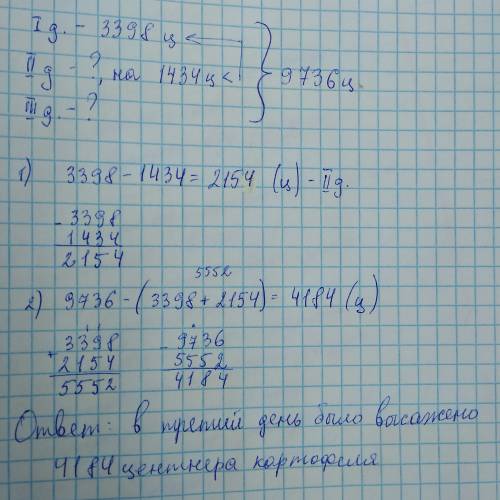 I д. - 3398 ц
II д - ?, на 1434 ц <
III д. - ?
9736 ц.
1) 3398 - 1434 = 2154 (ц) - II д.
- 3398
1434
2154
5552
2) 9736 - (3398 + 2154) = 4184 (ц)
+ 3398
2154
5552
- 9736
5552
4184
Ответ: в третий день было высажено
4184 центнера картофеля